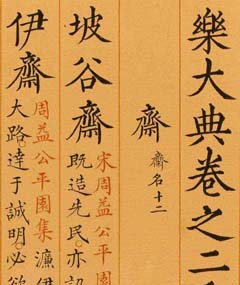 樂大典卷之二
齋
齋名十二
坡谷齋
宋周益公平園
既造先民亦認
伊齋
周益公平園集
濂伊
大路達于誠明必欲